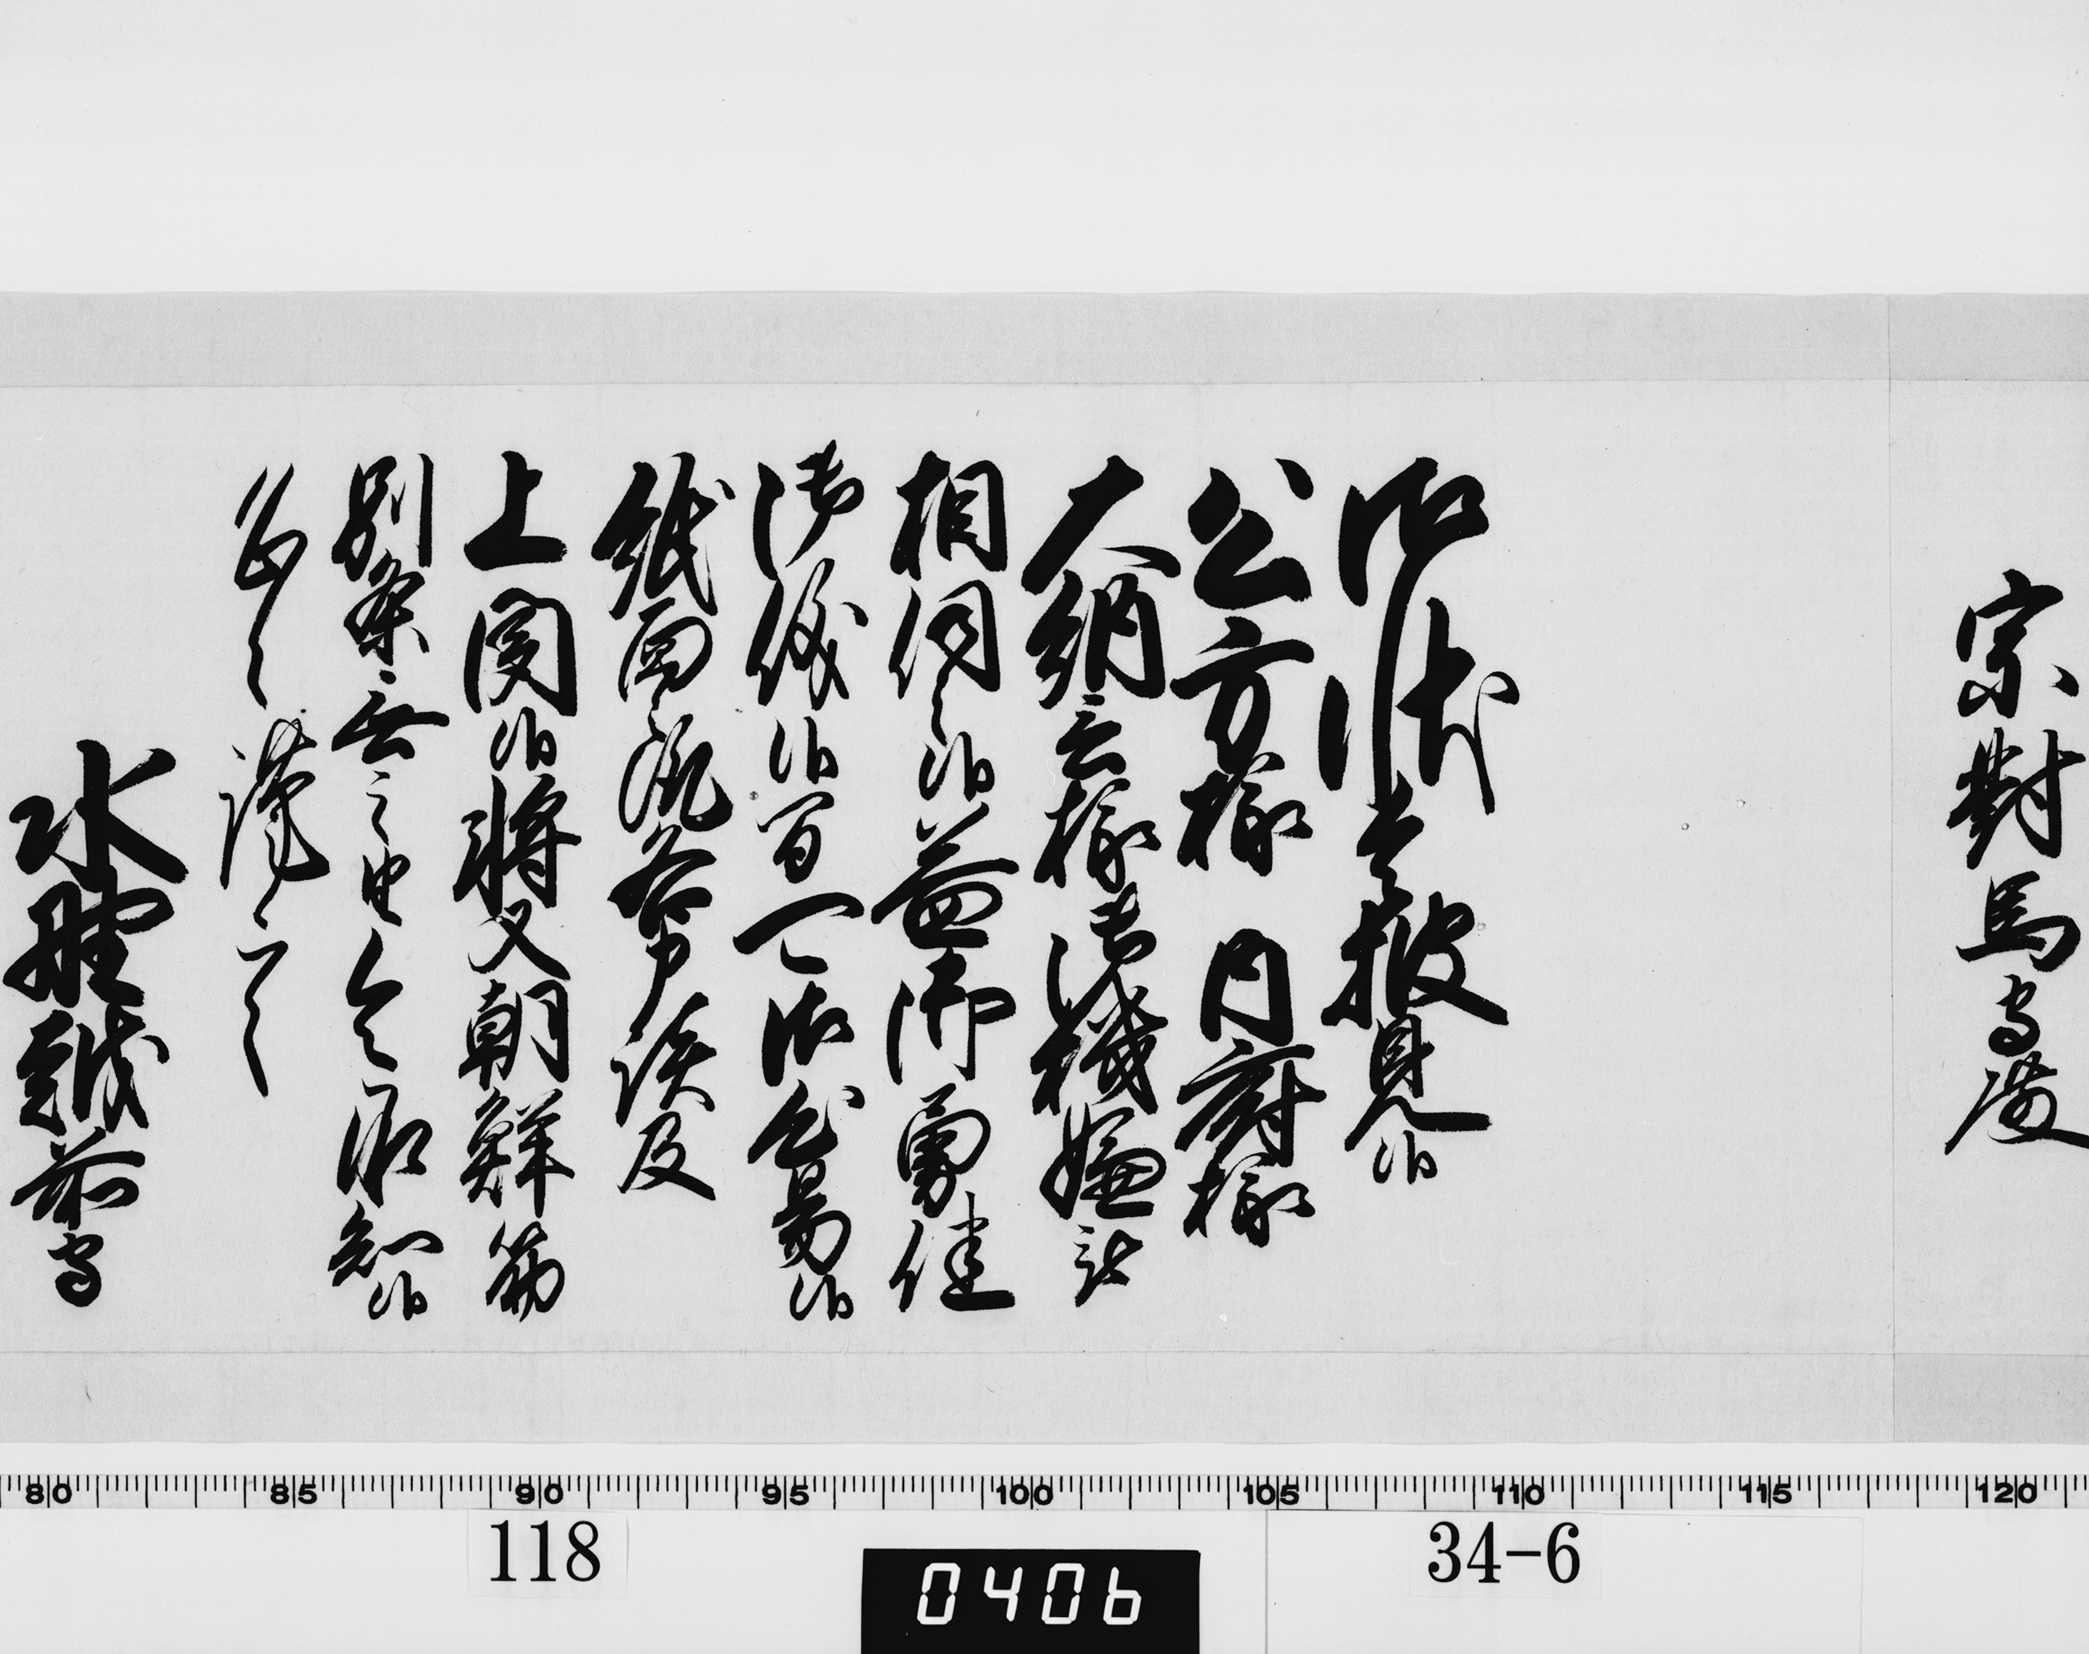 宗對馬守殿
御状令披見候
公方様 内府様
大納言様御機嫌被
相伺之候益御勇健
御儀候間可御心易候
紙面之趣各申談及
上聞候将又朝鮮筋
別条無之由令承知候
恐々謹言
水野越前守
80 85 90 95 100 105 110 115 120
118
0406
34-6